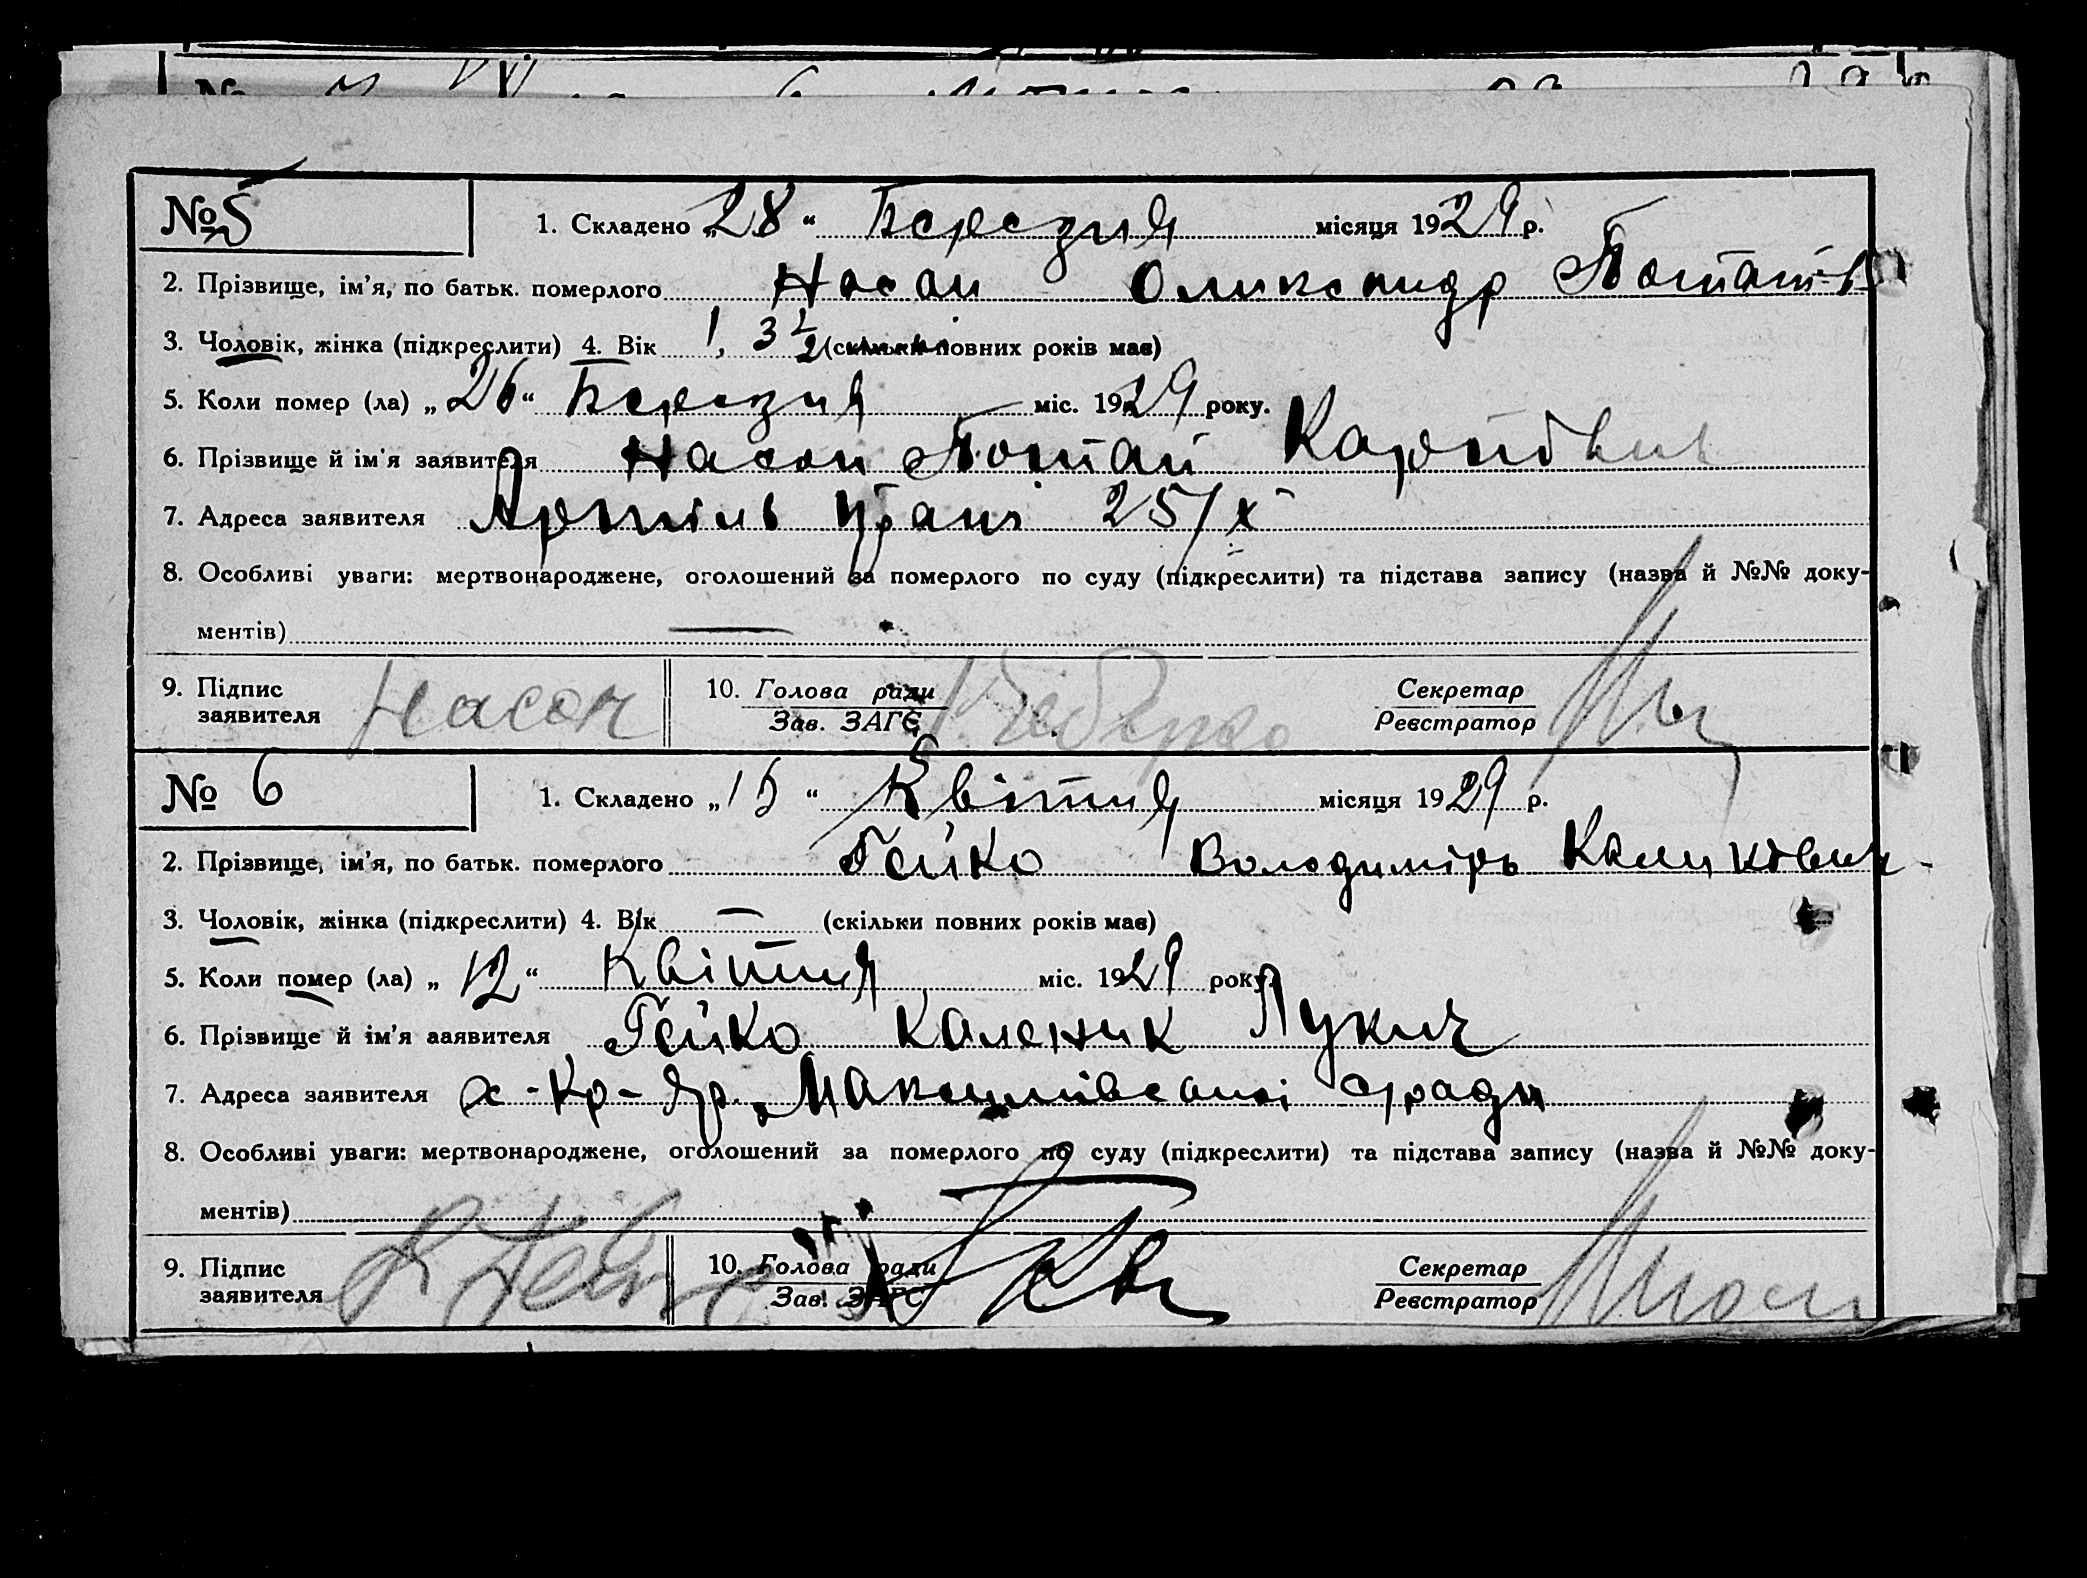 № 5 1. Складено „28“ Березня місяця 1929 р.
2. Прізвище, ім'я, по батьк. померлого Насон Олександр
3. Чоловік, жінка (підкреслити) 4. Вік 1, 3 1/2 (скільки повних років має)
5. Коли помер (ла) „26“ Березня міс. 1929 року.
6. Прізвище й ім'я заявителя Насон Потап Карпович
7. Адреса заявителя Артіль праці 25/X
8. Особливі уваги: мертвонароджене, оголошений за померлого по суду (підкреслити) та підстава запису (назва й №№ доку-
ментів)
9. Підпис заявителя Насон 10. Голова ради Секретар
Зав. ЗАГС Реєстратор
№ 6 1. Складено „15“ Квітня місяця 1929 р.
2. Прізвище, ім'я, по батьк. померлого Гейко Володимірь
3. Чоловік, жінка (підкреслити) 4. Вік — (скільки повних років має)
5. Коли помер (ла) „12“ Квітня міс. 1929 року.
6. Прізвище й ім'я заявителя Гейко Каленик Лукич
7. Адреса заявителя х-Кр-Яр. с/ради
8. Особливі уваги: мертвонароджене, оголошений за померлого по суду (підкреслити) та підстава запису (назва й №№ доку-
ментів)
9. Підпис заявителя К Гейко 10. Голова ради Секретар
Зав. ЗАГС Реєстратор